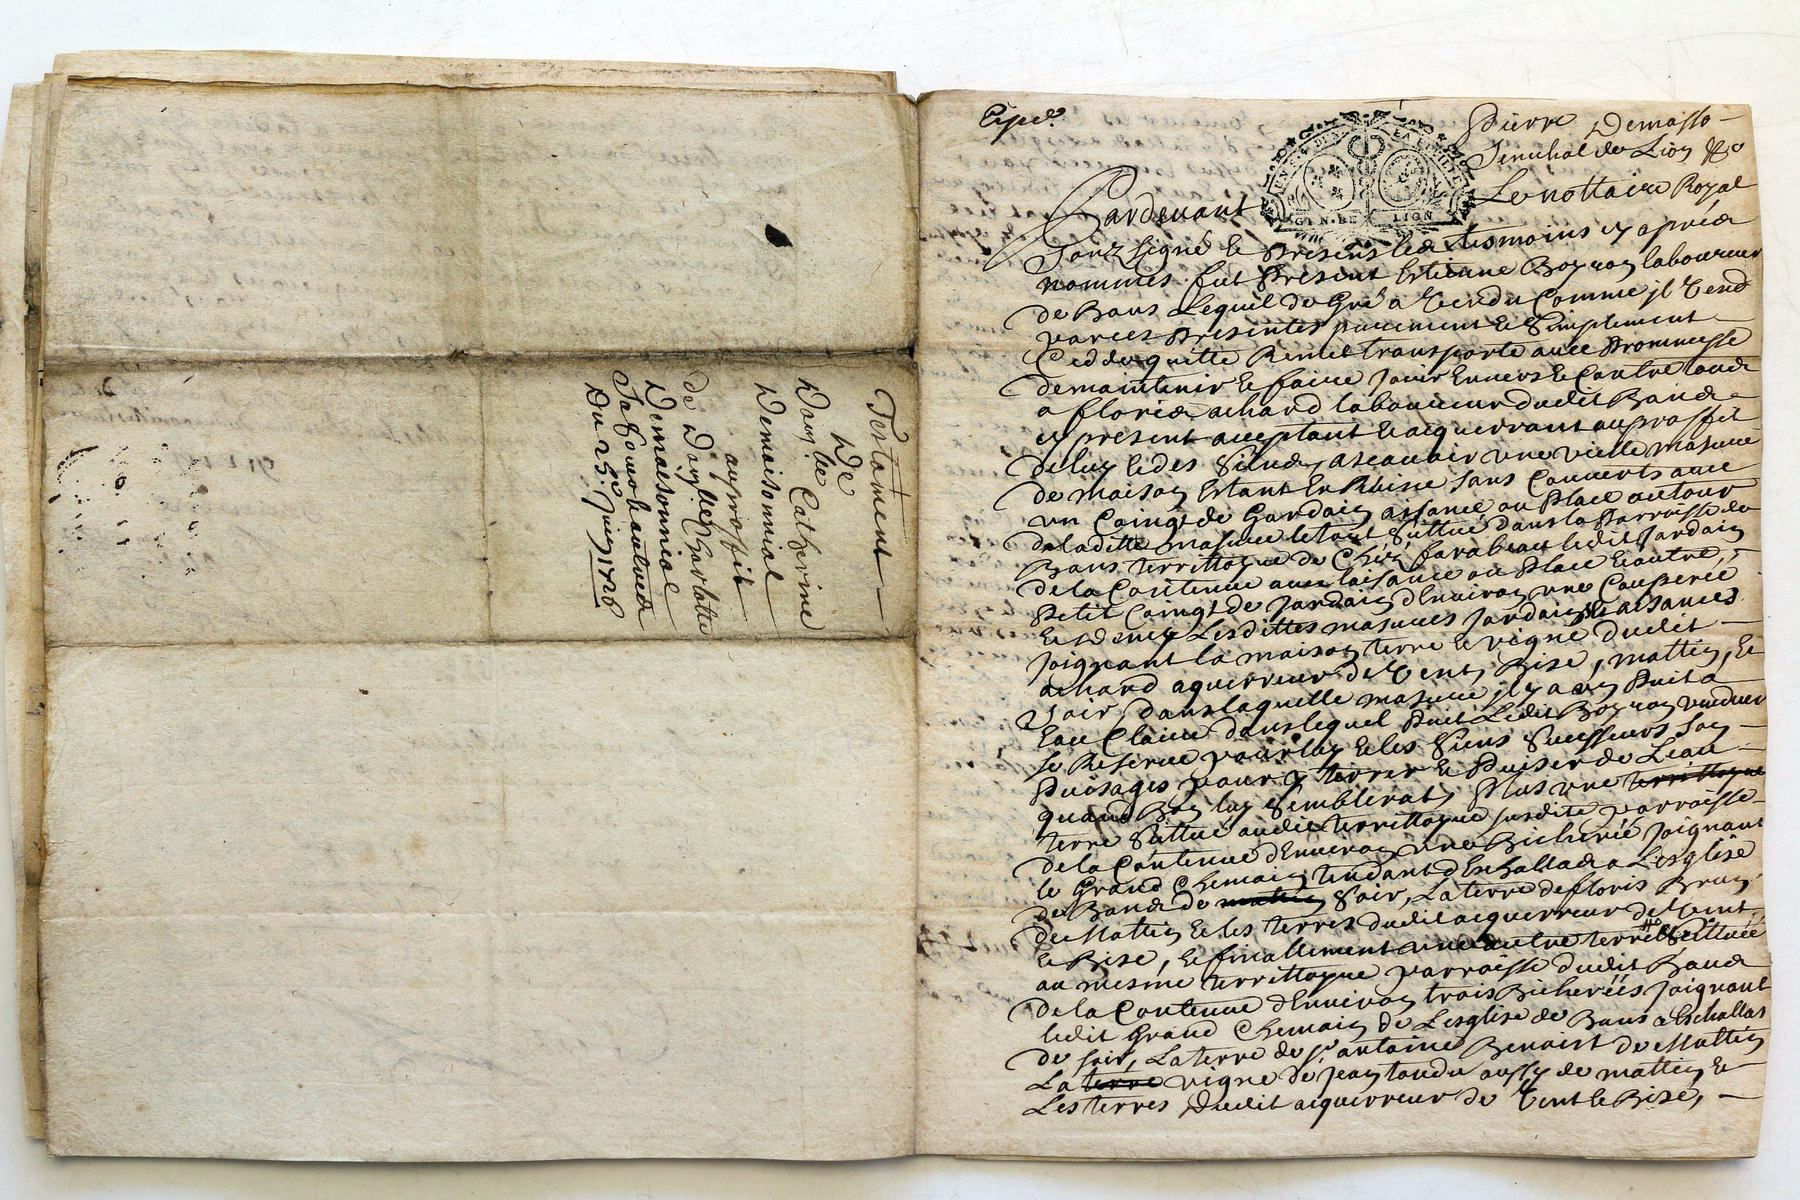 Testament
De
Dam.lle Catherine
Demaisonnial
au proffit
de Dam.lle Charlotte
Demaisonnial
Sa
Du 25e Juin 1726
Pierre Demasso
Senechal de Lion &c
GEN·DE LION
Pardevant Le nottaire Royal
Soubz signé et presens les tesmoins cy apres
nommés fut present Estienne laboureur
de Bans Lequel de Gré a Vendu Comme jl Vend
par ces presentes purement et Simplement
Cedde quitte Remet transporte avec Prommesse
de maintenir et faire jouir Envers et Contre tous
a floris achard laboureur dudit Bans
cy present acceptant et acquerrant au proffit
de luy et des Siens, ascavoir une vielle masure
de maison Estant En Ruine Sans Couverts avec
un Coing de Jardain aisance ou Place autour
de la ditte masure le tout Scittué dans la Parroisse de
Bans territtoyre de ledit Jardain
de la Contenue avec laisance ou Place
Petit Coing de Jardain d'Environ une Couperée
et demy Lesdittes masures Jardain et aisances
Joignant la maison terre et vigne dudit
achard aquerreur de Vent, Bise, mattin, Et
Soir dans laquelle masure jl y a un Puit a
Eau Claire dans lequel Puit Ledit vendeur
se Reserve pour luy et les Siens Successeurs Son
Puisages pour y tirer et Puiser de Leau
quand Bon luy Semblerat, Plus une territtoyre
terre Scittué audit territtoyre susditte parroisse
de la Contenue d'Environ une Bicherée Joignant
le Grand Chemain tendant d'Eschallas a L'esglise
de Bans de mattin Soir, La terre de floris Brun
de Mattin et les terres dudit acquerreur de Vent
et Bise, et finallement une autre terre Scittuée
au mesme territtoyre parroisse dudit Bans
de la Contenue d'Environ trois Bicherées Joignant
ledit Grand Chemain de L'esglise de Bans a Eschallas
de soir, La terre de Sr antoine Benoist de Mattin
La terre vigne de Jean aussy de mattin et
Les terres Dudit acquerreur de Vent et Bise,